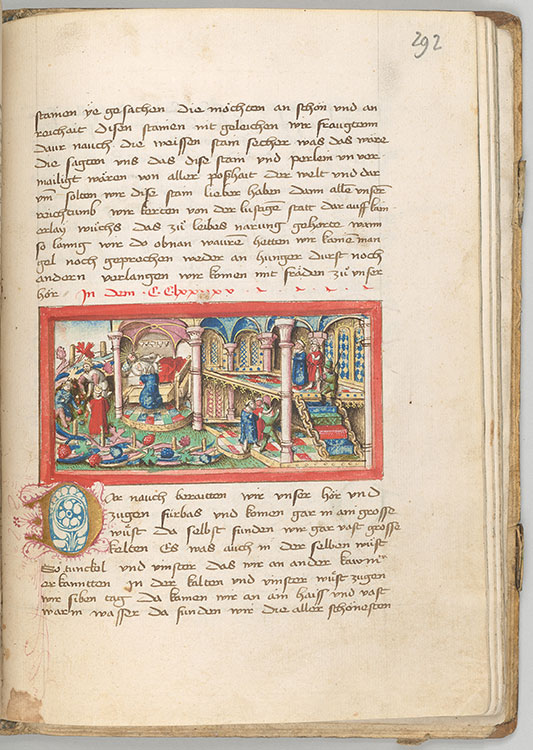 292
stainen ye gesachen die mochten an schön und an
reichait disen stainen nit geleichen wir fraugtenn
daur nauch die weissen stain secher was das wäre
die sagten uns das dise stain und perlein un ver
mailigt wären von aller poßhait der welt und dar
um solten wir dise stain lieber haben dann alle unser
reichtumb wir kerten von der lustigen statt dar auff kain
erlay wuchs das zu leibes narung gehorte wann
so lanng wir do obnan waure hetten wir kainē man
gel noch geprochen weder an hunger durst noch
andern verlangen wir komen mit fräden zu unser
hör In dem
Dar nauch beraitten wir unser hör und
zugen fürbas und komen gar in ain grosse
wüst da selbst funden wir gar vast grosse
kelten Es was auch in der selben wüst
So tunckel und vinster das wir an ander kawm
erkanntten in der kalten und vinster wüst zugen
wir siben tag Da kamen wir an ain haiss und vast
warm wasser da funden wir die aller schönesten